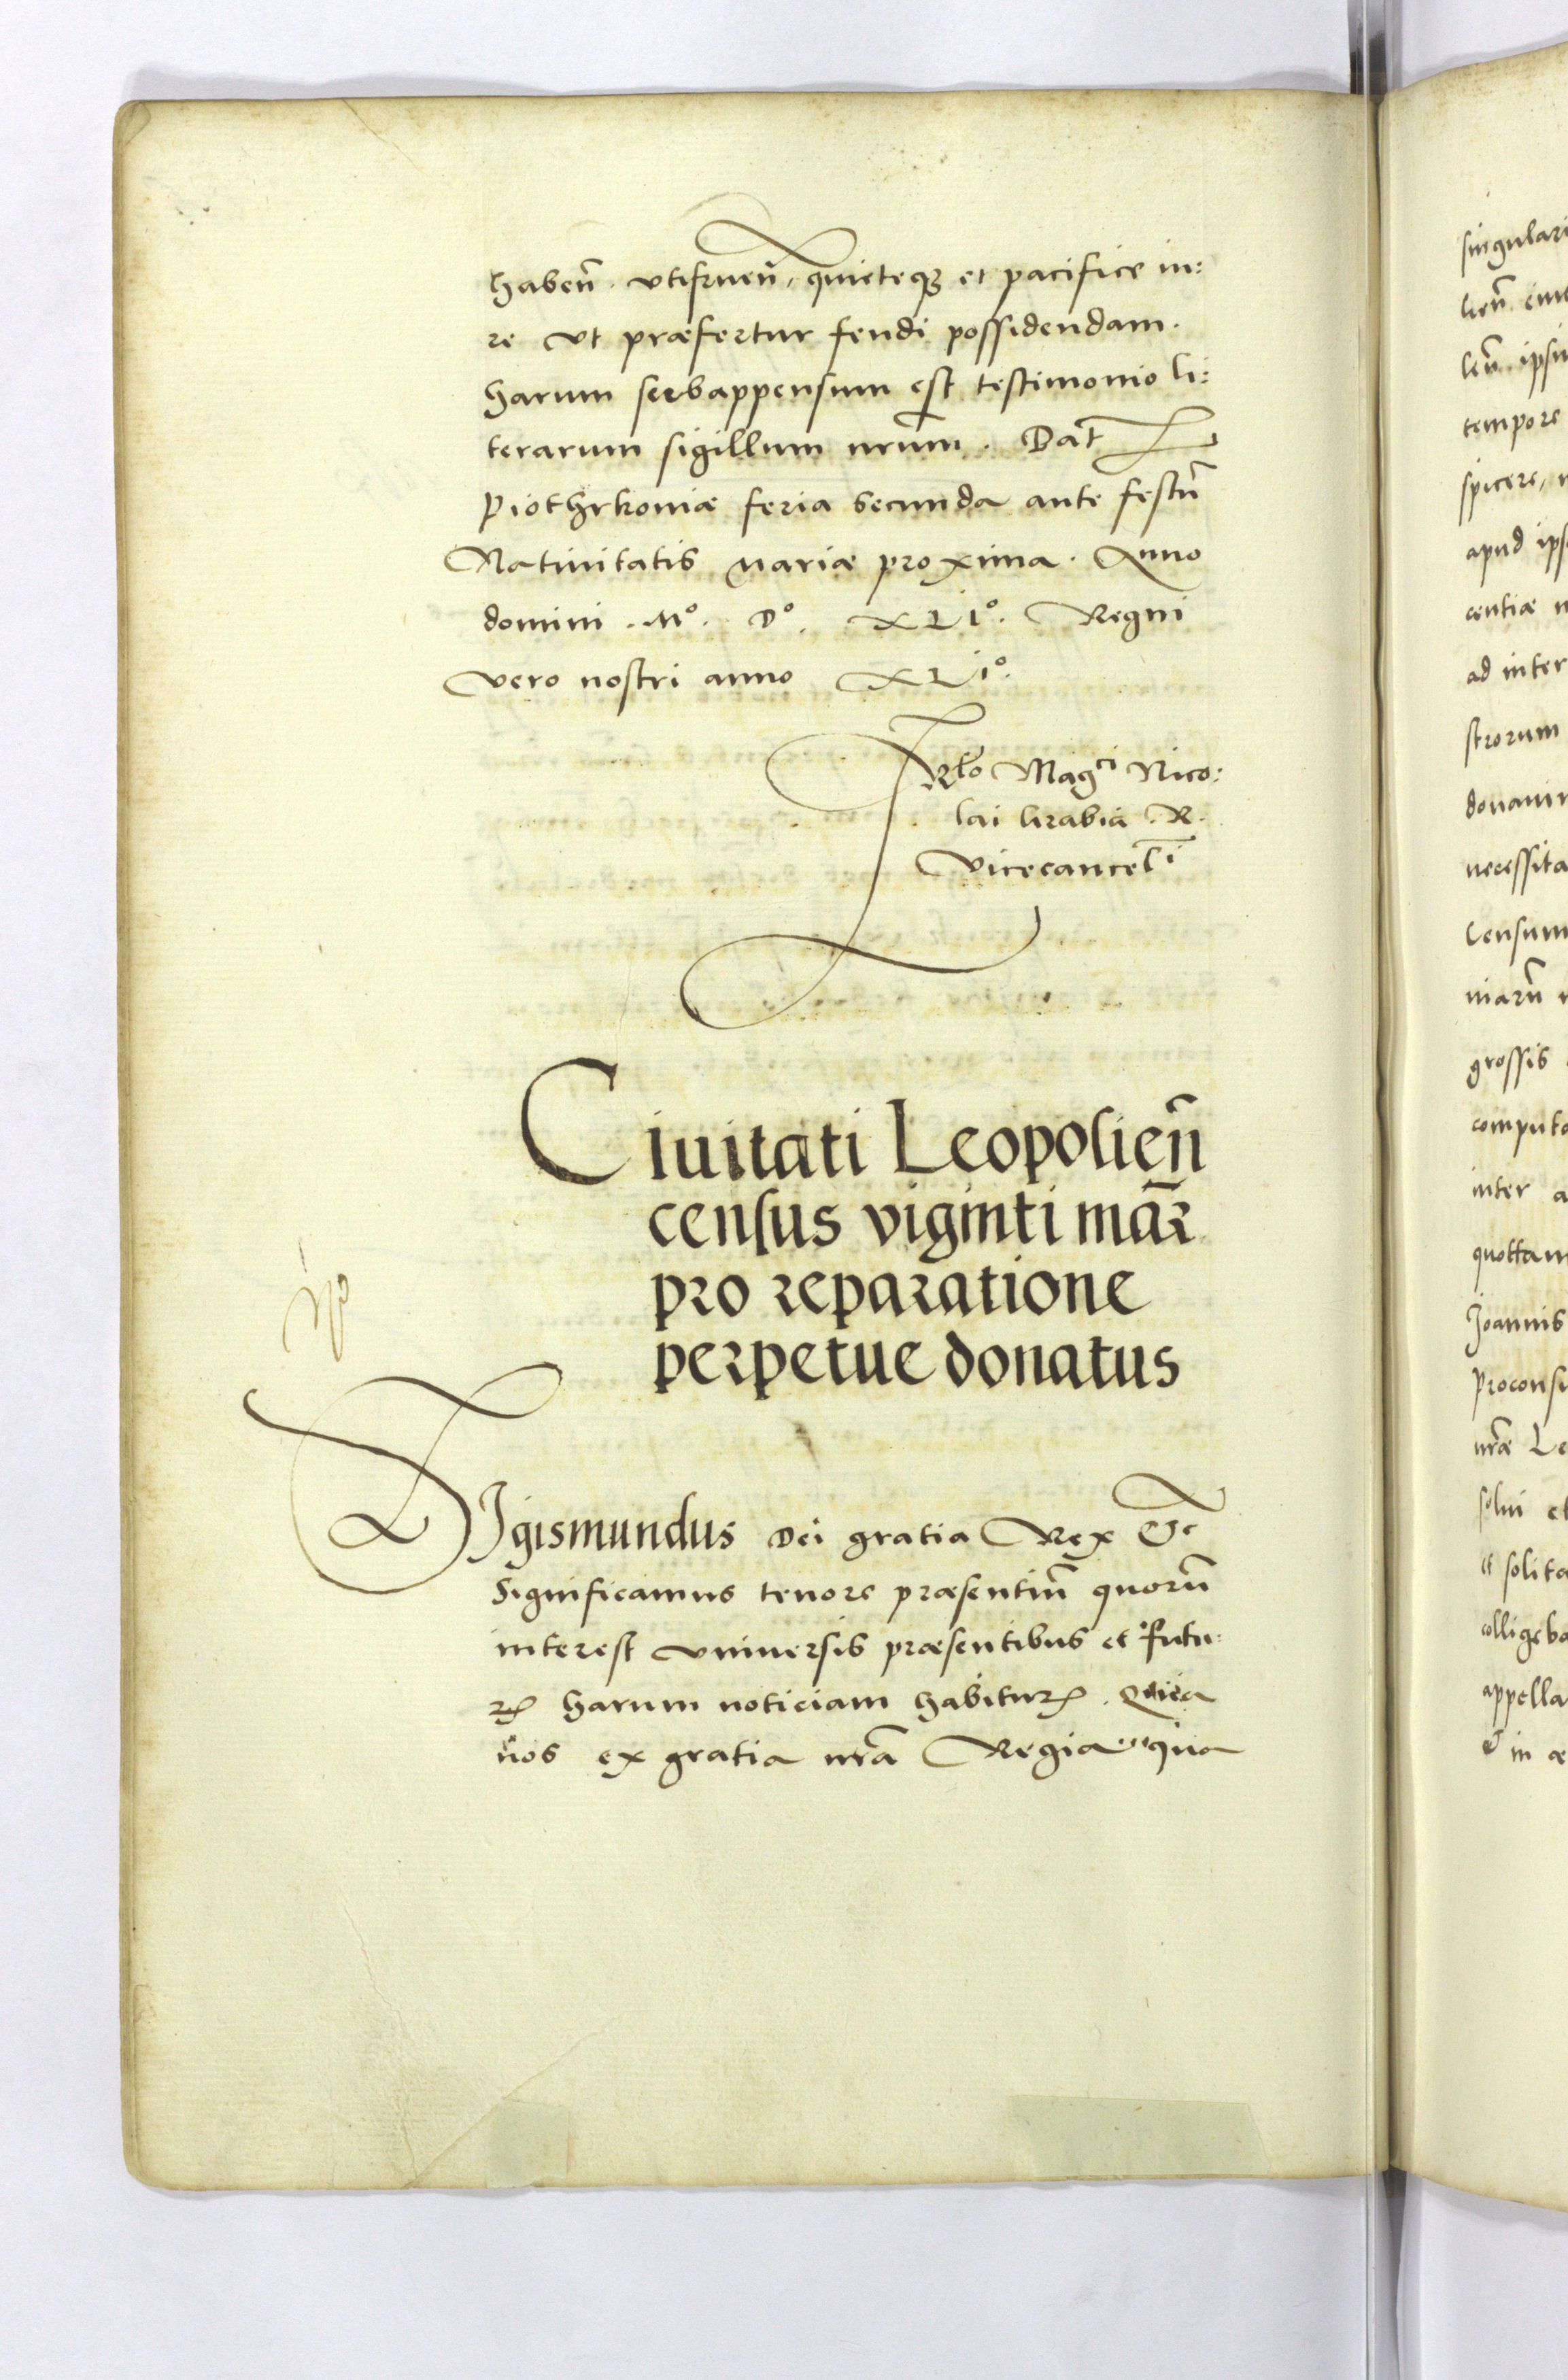 habeñ. vtifrueñ, quieteqз et pacifice iu:
re vt præfertur feudi possidendam.
Harum subappensum est testimonio li:
terarum sigillum nrũm. Dat̃
Piothrkoniæ feria secunda ante festũ
Natiuitatis Mariæ proxima. Anno
domini. Mº. Dº. XLIº. Regni
vero nostri anno XLIº.
Rlõ Magci Nico:
lai Grabia R.
Vicecancelri
Ciuitati Leopolieñ
census viginti mar̃
pro reparatione
perpetue donatus
SIgismundus Dei gratia Rex &c
Significamus tenore præsentiũ quorũ
interest vniuersis præsentibus et futu:
rꝭ harum noticiam habiturꝭ. Quia
nos ex gratia nrã Regia qua
singulari
lieñ. ciui
leñ. ipsiu
tempore
spicere, 
apud ips
centiæ
ad inter
strorum
donauim
necessita
Censum
niarũ
grossis
computa
inter a
quottan
Joannis
Proconsu
nrãe Le
solui et
et solita
colligeba
appella
& in